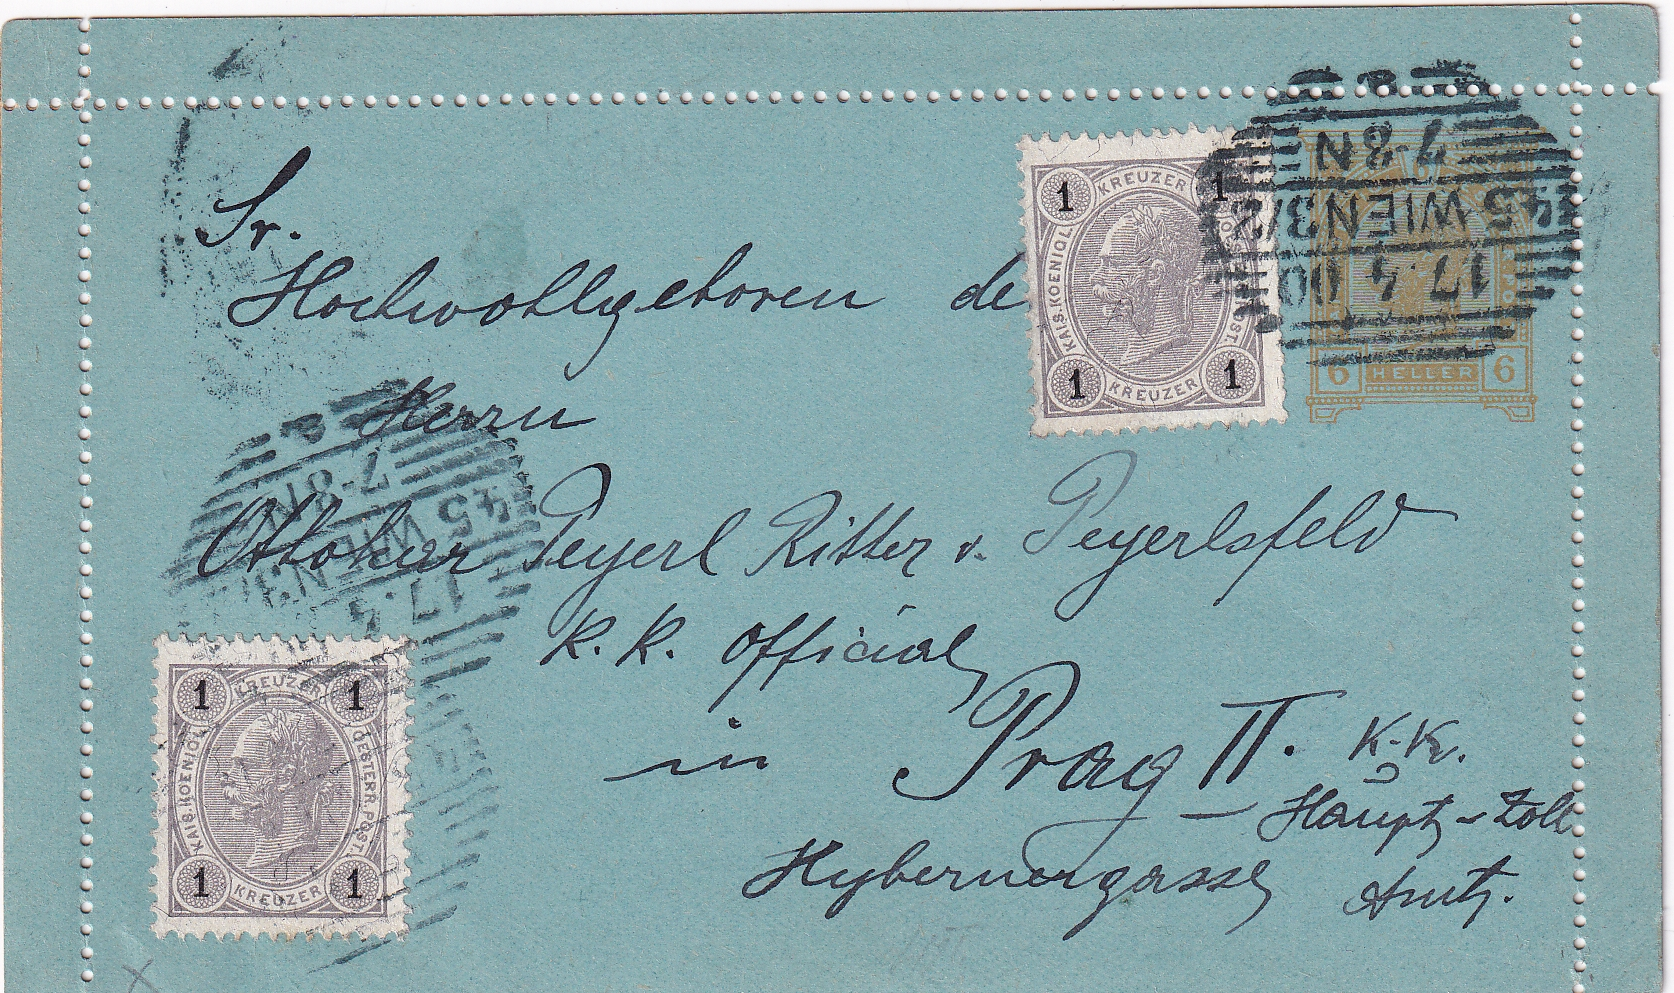 Sr.
Hochwohlgeboren de
Herrn
Ottokar Peyerl Ritter v. Peyerlsfeld
K. K. Official
in Prag II. K.K.
Haupt-Zoll
Hybernergasse Amt.
1 KREUZER 1
KAIS. KOENIGL. OESTERR. POST.
1 KREUZER 1
6 HELLER 6
7-8 N
45 WIEN 3/2
17.4.00
7-8 N
45 WIEN 3
17.4
1 KREUZER 1
KAIS. KOENIGL. OESTERR. POST.
1 KREUZER 1